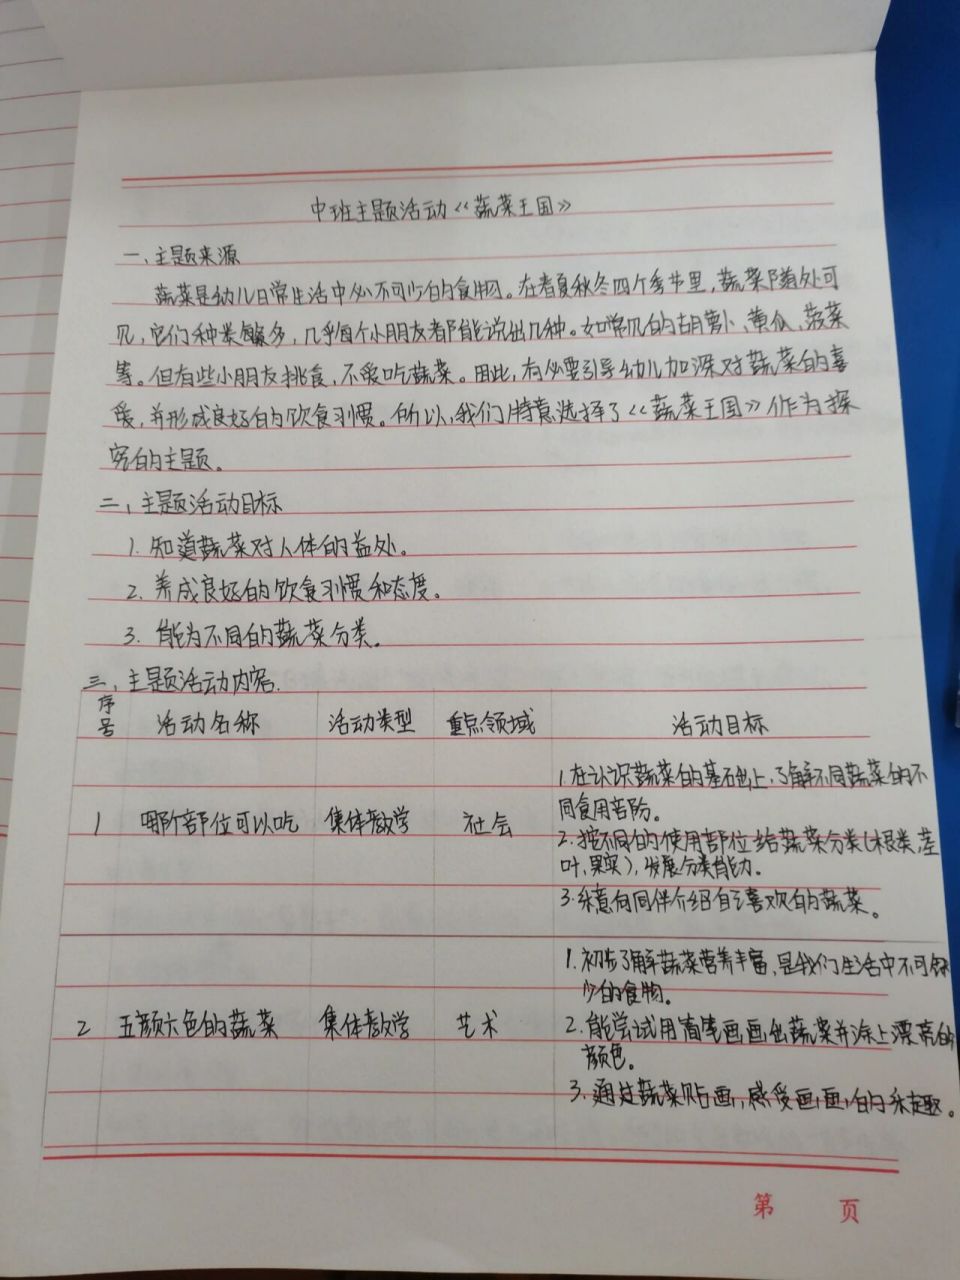 中班主题活动《蔬菜王国》
一、主题来源
蔬菜是幼儿日常生活中必不可少的食物。在春夏秋冬四个季节里，蔬菜随处可
见，它们种类繁多，几乎每个小朋友都能说出几种。如常见的胡萝卜、黄瓜、菠菜
等。但有些小朋友挑食，不爱吃蔬菜。因此，有必要引导幼儿加深对蔬菜的喜
爱，并形成良好的饮食习惯。所以，我们特意选择了《蔬菜王国》作为探
究的主题。
二、主题活动目标
1. 知道蔬菜对人体的益处。
2. 养成良好的饮食习惯和态度。
3. 能为不同的蔬菜分类。
三、主题活动内容.
序号 活动名称 活动类型 重点领域 活动目标
1 哪个部位可以吃 集体教学 社会
1. 在认识蔬菜的基础上，了解不同蔬菜的不
同食用部防。
2. 按不同的使用部位给蔬菜分类(根类,茎
叶,果实)，发展分类能力。
3. 乐意向同伴介绍自己喜欢的蔬菜。
2 五颜六色的蔬菜 集体教学 艺术
1. 初步了解蔬菜营养丰富，是我们生活中不可缺
少的食物。
2. 能尝试用简笔画画出蔬菜并涂上漂亮的
颜色。
3. 通过蔬菜贴画，感受画画的乐趣。
第 页